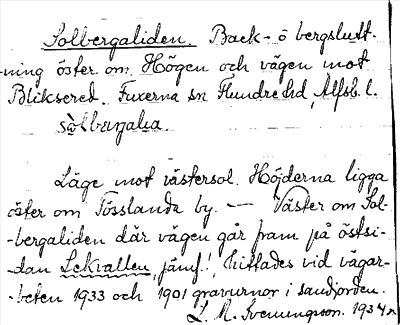 Solbergaliden. Back- o bergslutt-
-ning öster om Högen och vägen mot
Bliksered. Fuxerna sn Flundre hd, Älfsb. l.
sòlbærjalia.
Läge mot västersol. Höjderna ligga
öster om Tösslanda by. — Väster om Sol-
-bergaliden där vägen går fram på östsi-
-dan Lekvallen, jämf!, hittades vid vägar-
-beten 1933 och 1901 gravurnor i sandjorden.
L. M. Svenungsson. 1934